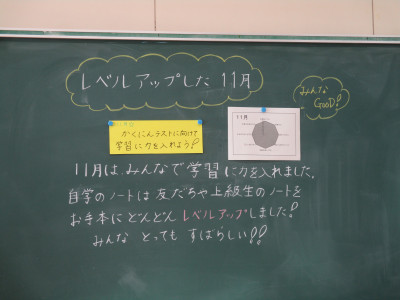 レベルアップした 11月
みんな
GooD!
かくにんテストに向けて
学習に力を入れよう!
11月
11月は、みんなで学習に力を入れました。
自学のノートは友だちや上級生のノートを
お手本にどんどんレベルアップしました!
みんな とっても すばらしい!!